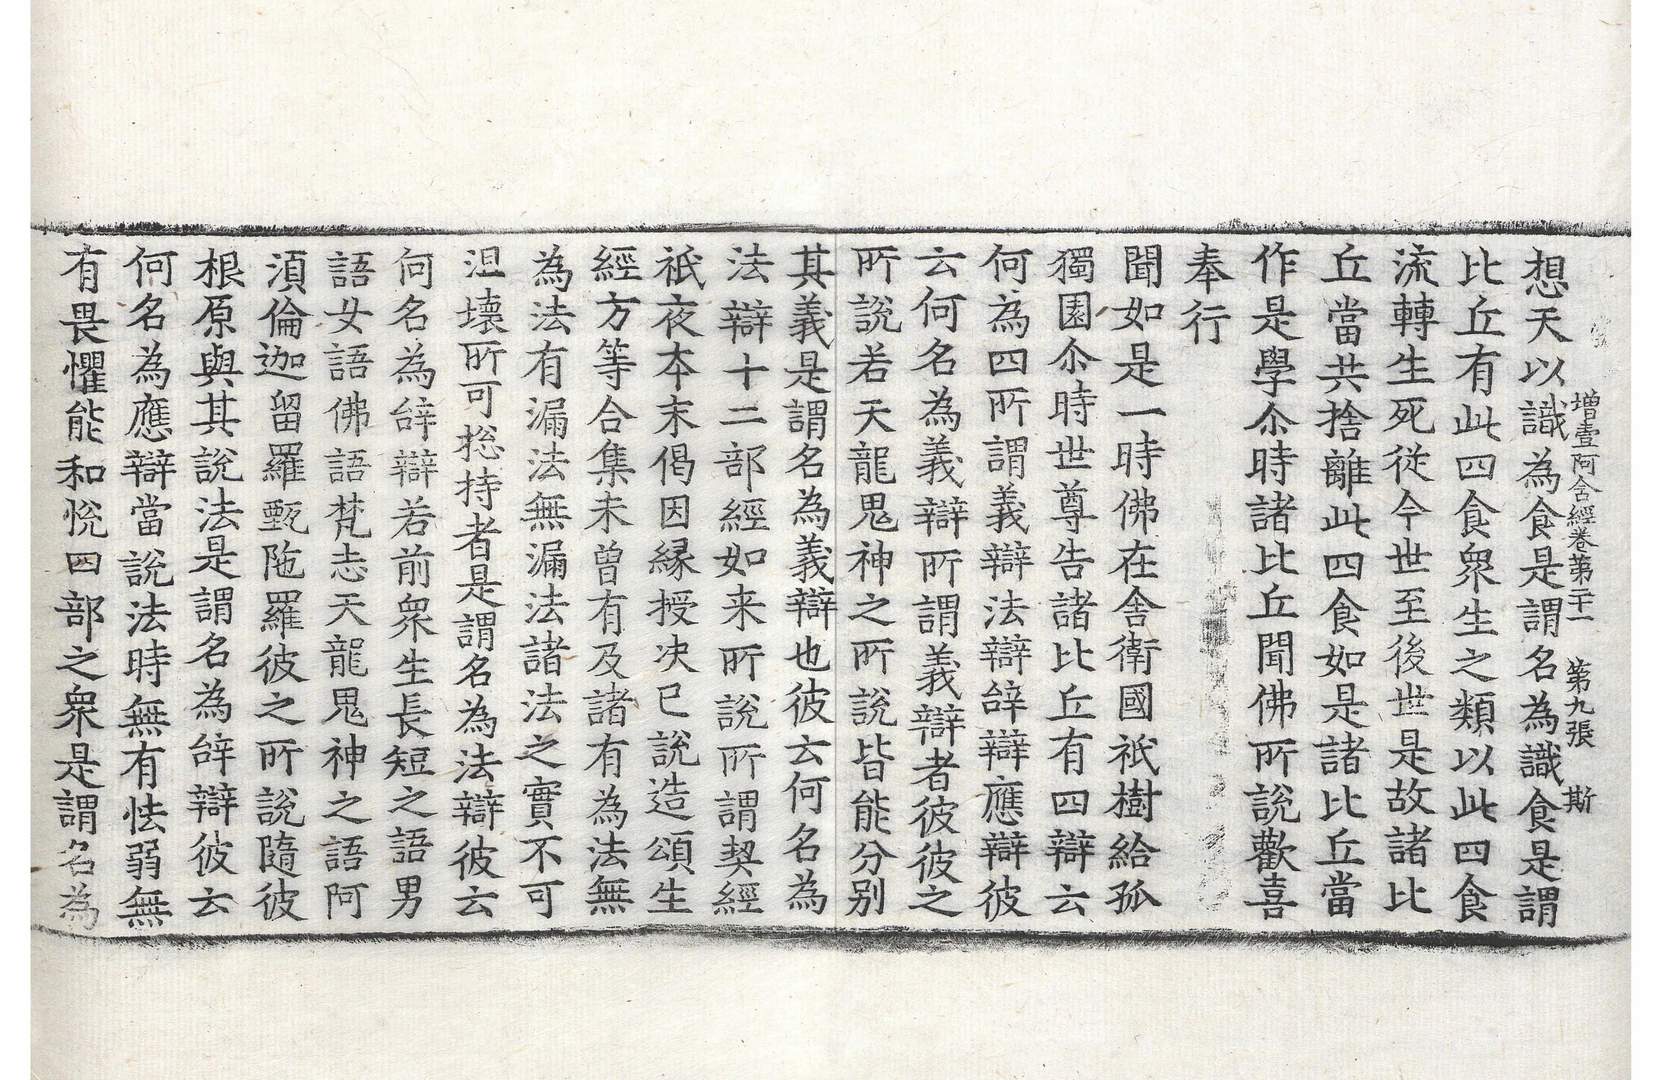 增壹阿含經卷第二十一　第九張　斯
想天以識為食是謂名為識食是謂
比丘有此四食衆生之類以此四食
流轉生死從今世至後世是故諸比
丘當共捨離此四食如是諸比丘當
作是學尒時諸比丘聞佛所說歡喜
奉行
聞如是一時佛在舍衛國祇樹給孤
獨園尒時世尊告諸比丘有四辯云
何為四所謂義辯法辯辞辯應辯彼
云何名為義辯所謂義辯者彼彼之
所說若天龍鬼神之所說皆能分別
其義是謂名為義辯也彼云何名為
法辯十二部經如来所說所謂契經
祇夜本末偈因縁授決已說造頌生
經方等合集未曾有及諸有為法無
為法有漏法無漏法諸法之實不可
沮壞所可捴持者是謂名為法辯彼云
何名為辞辯若前衆生長短之語男
語女語佛語梵志天龍鬼神之語阿
湏倫迦留羅甄陁羅彼之所說隨彼
根原與其說法是謂名為辞辯彼云
何名為應辯當說法時無有怯弱無
有畏懼能和悅四部之衆是謂名為